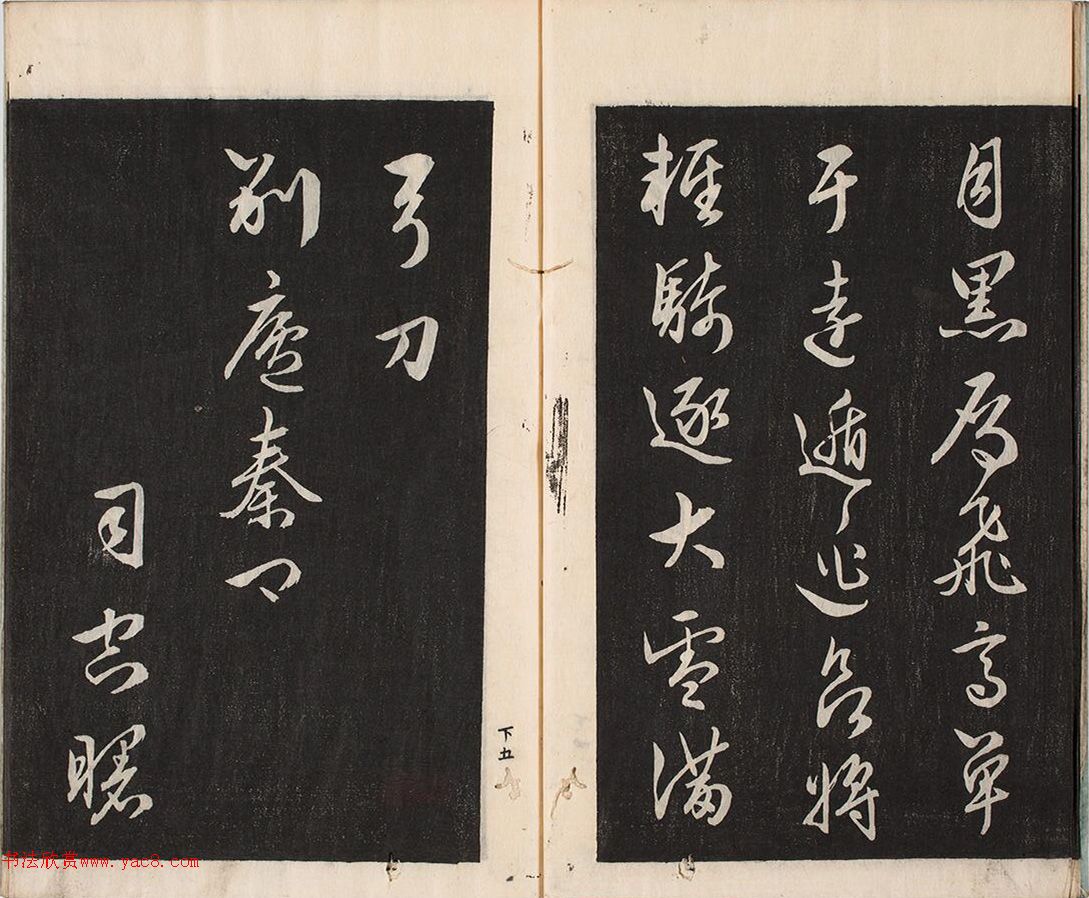 月黑雁飛高單
于遠遁逃欲將
輕騎逐大雪滿
弓刀
別盧秦卿
司空曙
下五
书法欣赏www.yac8.com